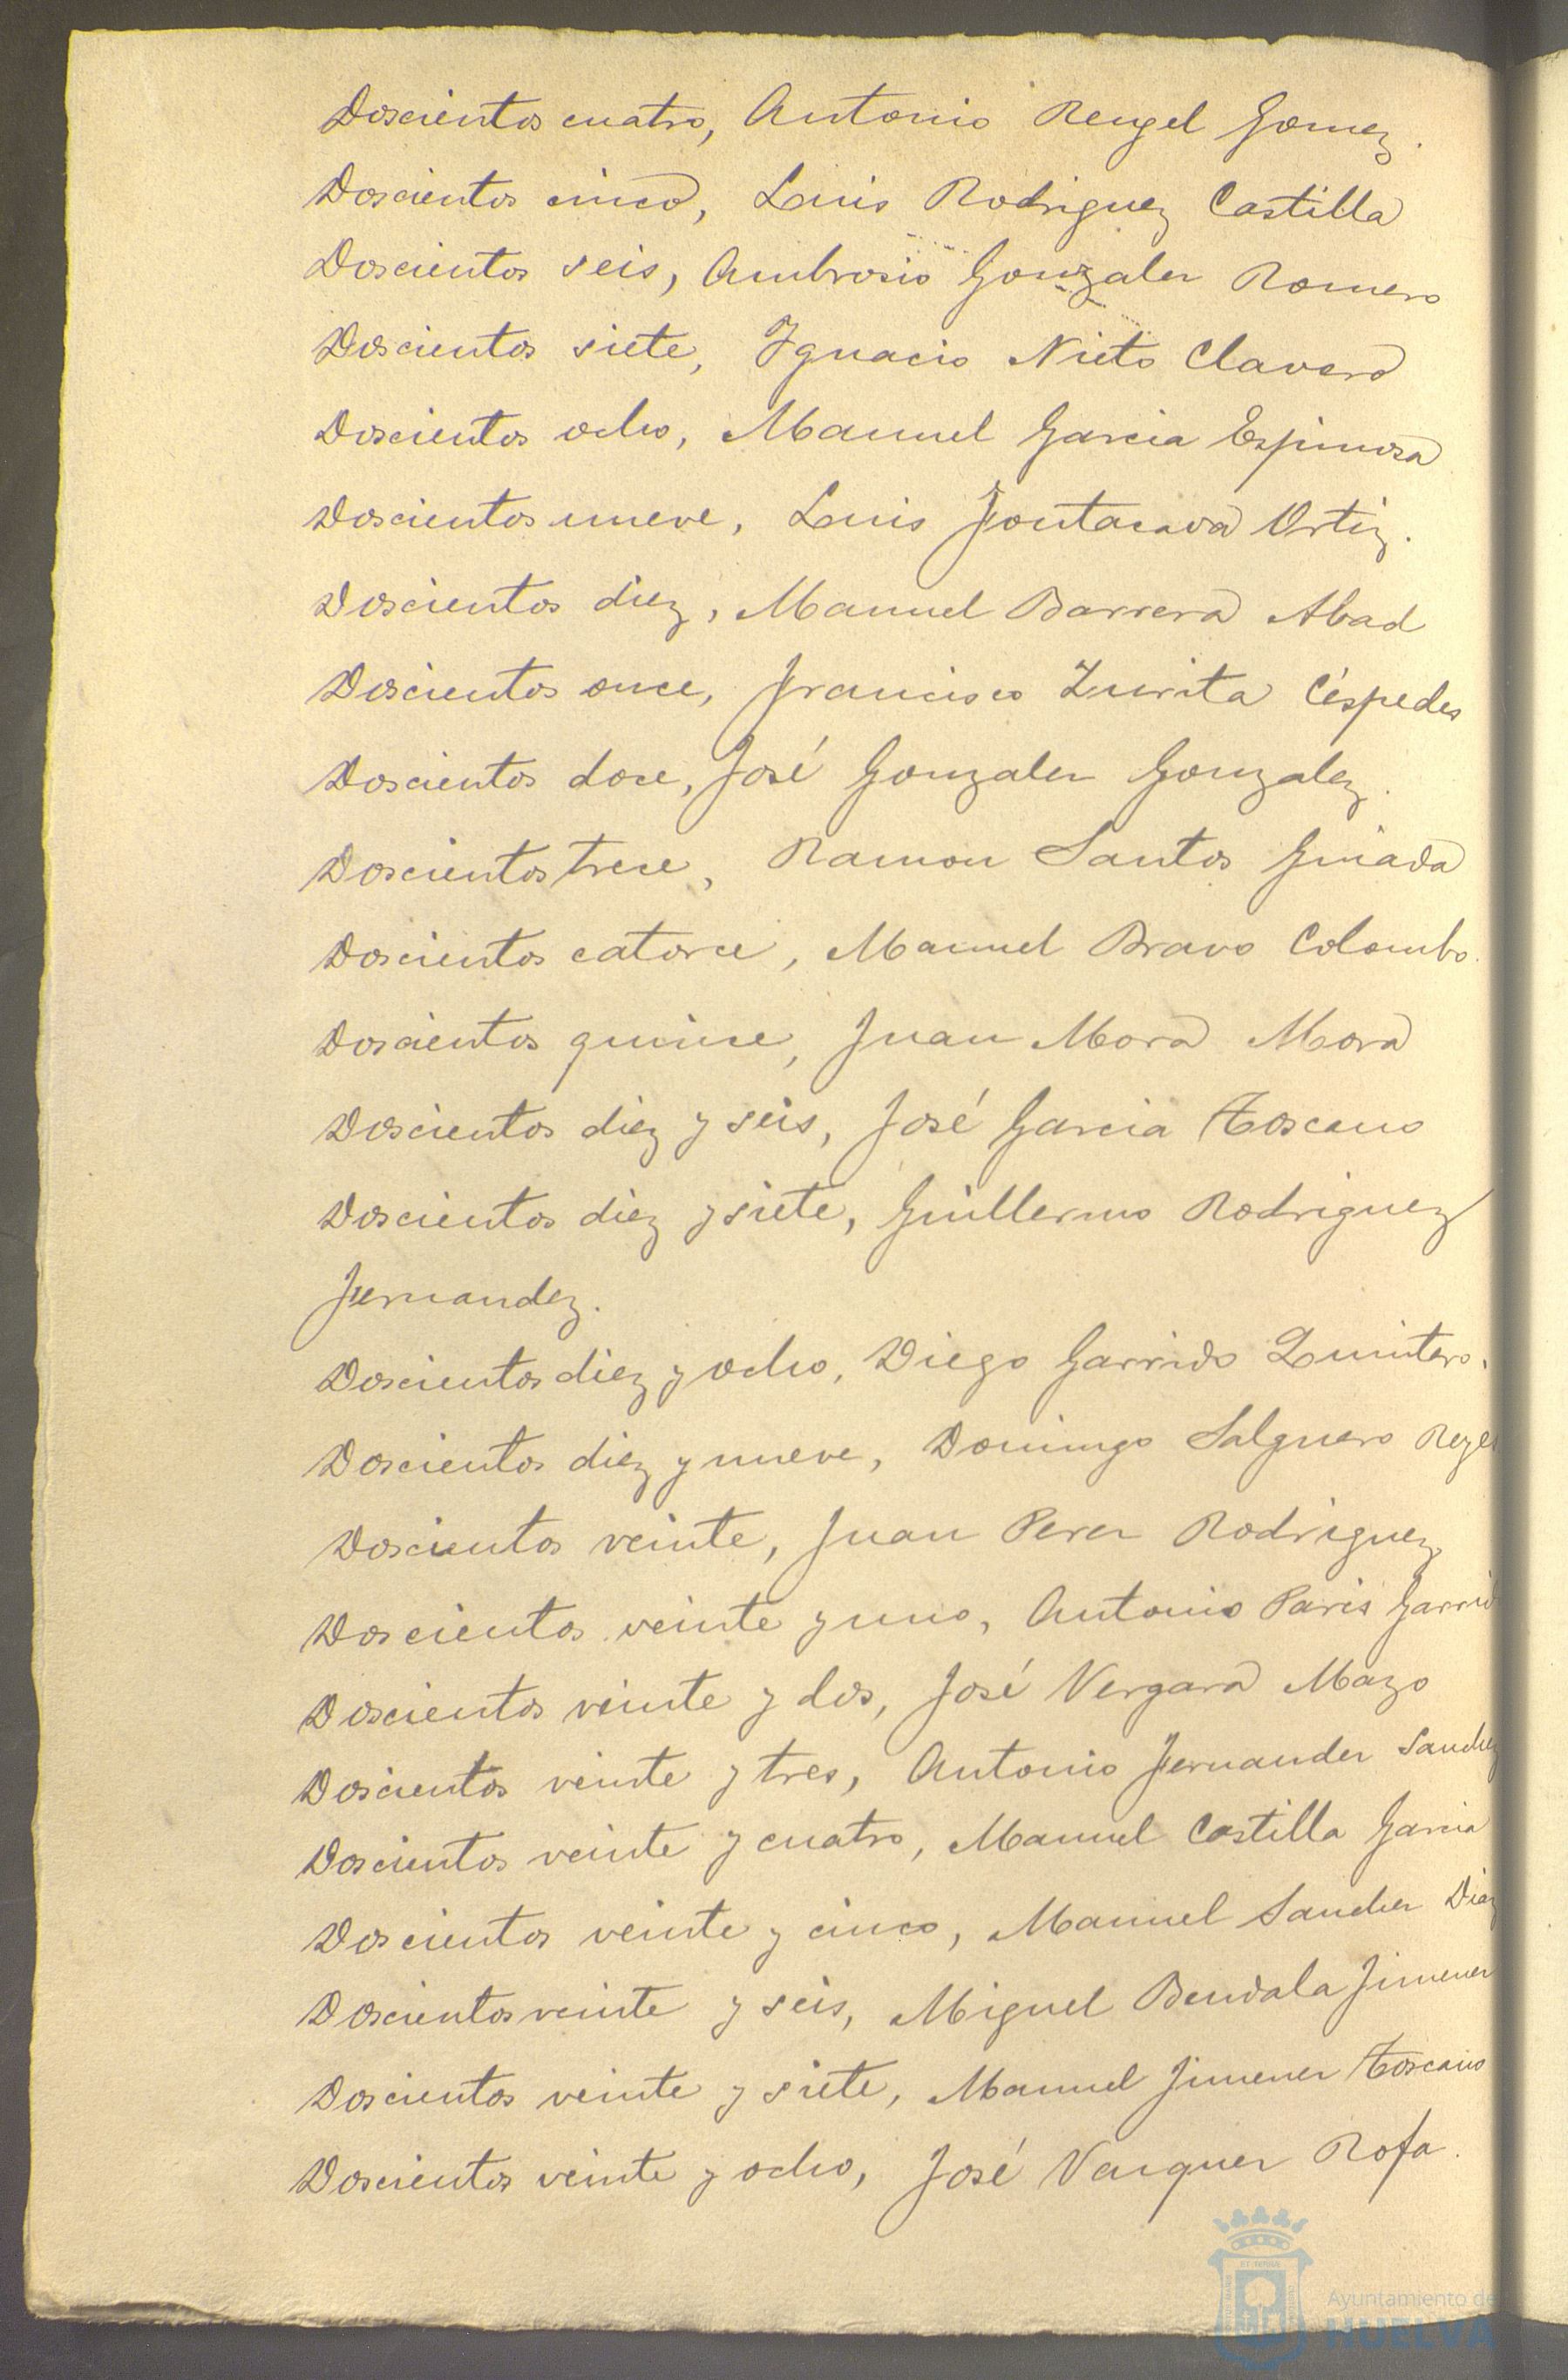 Doscientos cuatro, Antonio Rengel Gomez.
Doscientos cinco, Luis Rodriguez Castilla
Doscientos seis, Ambrosio Gonzalez Romero
Doscientos siete, Ignacio Nieto Clavero
Doscientos ocho, Manuel Garcia Espinosa
Doscientos nueve, Luis Fontacava Ortiz.
Doscientos diez, Manuel Barrera Abad
Doscientos once, Francisco Zurita Céspedes
Doscientos doce, José Gonzalez Gonzalez.
Doscientos trece, Ramon Santos Guiada
Doscientos catorce, Manuel Bravo Colombo.
Doscientos quince, Juan Mora Mora
Doscientos diez y seis, José Garcia Toscano
Doscientos diez y siete, Guillermo Rodriguez
Fernandez.
Doscientos diez y ocho, Diego Garrido Quintero.
Doscientos diez y nueve, Domingo Salguero Reyes
Doscientos veinte, Juan Perez Rodriguez
Doscientos veinte y uno, Antonio Paris Garrido
Doscientos veinte y dos, José Vergara Mazo
Doscientos veinte y tres, Antonio Fernandez Sanchez
Doscientos veinte y cuatro, Manuel Castilla Garcia
Doscientos veinte y cinco, Manuel Sanchez Diaz
Doscientos veinte y seis, Miguel Bendala Jimenez
Doscientos veinte y siete, Manuel Jimenez Toscano
Doscientos veinte y ocho, José Vazquez Rofa.
Ayuntamiento de
HUELVA